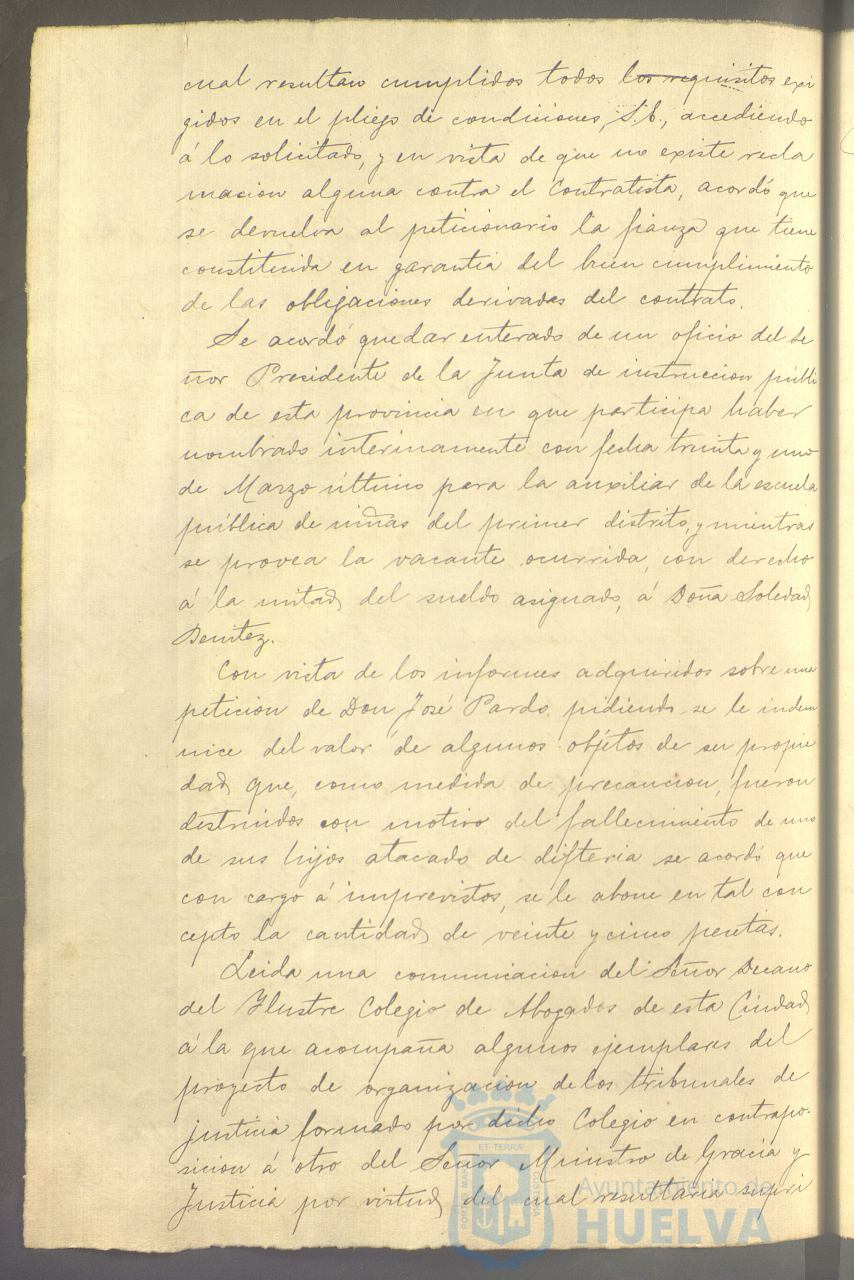 cual resultan cumplidos todos los requisitos exi
gidos en el pliego de condiciones, S.E., accediendo
á lo solicitado, y en vista de que no existe recla
macion alguna contra el Contratista, acordó que
se devuelva al peticionario la fianza que tiene
constituida en garantia del buen cumplimiento
de las obligaciones derivadas del contrato.
Se acordó quedar enterado de un oficio del Se
ñor Presidente de la Junta de instruccion públi
ca de esta provincia en que participa haber
nombrado interinamente con fecha treinta y uno
de Marzo último para la auxiliar de la escuela
pública de niñas del primer distrito, y mientras
se provea la vacante ocurrida, con derecho
á la mitad del sueldo asignado, á Doña Soledad
Benitez.
Con vista de los informes adquiridos sobre una
peticion de Don José Pardo pidiendo se le indem
nice del valor de algunos objetos de su propie
dad que, como medida de precaucion, fueron
destruidos con motivo del fallecimiento de uno
de sus hijos atacado de difteria se acordó que
con cargo á imprevistos, se le abone en tal con
cepto la cantidad de veinte y cinco pesetas.
Leida una comunicacion del Señor Decano
del Ylustre Colegio de Abogados de esta Ciudad
á la que acompaña algunos ejemplares del
proyecto de organizacion de los tribunales de
justicia formado por dicho Colegio en contrapo-
sicion á otro del Señor Ministro de Gracia y
Justicia por virtud del cual resultaria supri
Ayuntamiento de
HUELVA